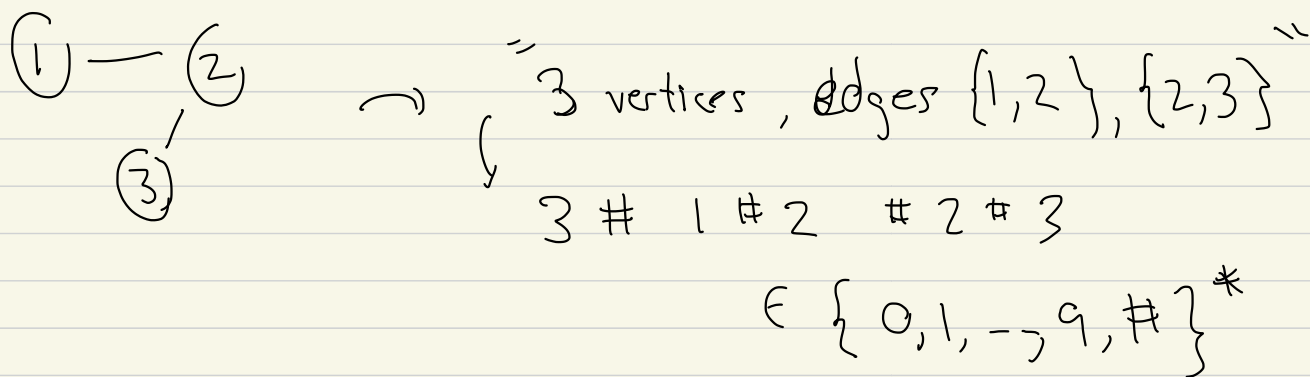 ① — ② → "3 vertices, edges {1,2}, {2,3}"
③
3 # 1 # 2 # 2 # 3
∈ {0,1,--,9,#}*